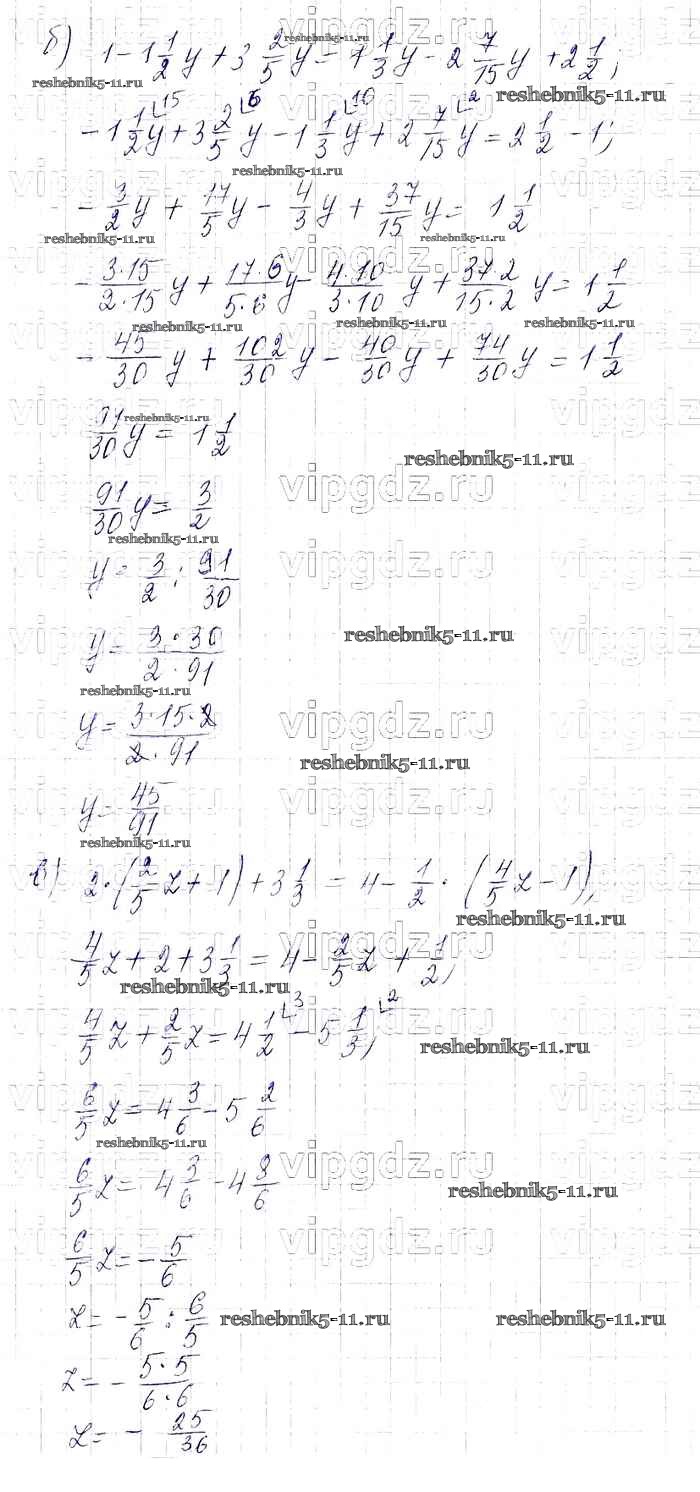 б) 1 - 1 1/2 y + 3 2/5 y = 1 1/3 y - 2 7/15 y + 2 1/2;
- 1 1/2 y + 3 2/5 y - 1 1/3 y + 2 7/15 y = 2 1/2 - 1;
- 3/2 y + 17/5 y - 4/3 y + 37/15 y = 1 1/2
- 3·15/2·15 y + 17·6/5·6 y - 4·10/3·10 y + 37·2/15·2 y = 1 1/2
- 45/30 y + 102/30 y - 40/30 y + 74/30 y = 1 1/2
91/30 y = 1 1/2
91/30 y = 3/2
y = 3/2 : 91/30
y = 3·30/2·91
y = 3·15·2/2·91
y = 45/91
в) 2·(2/5 z + 1) + 3 1/3 = 4 - 1/2 · (4/5 z - 1),
4/5 z + 2 + 3 1/3 = 4 - 2/5 z + 1/2,
4/5 z + 2/5 z = 4 1/2 - 5 1/3,
6/5 z = 4 3/6 - 5 2/6
6/5 z = 4 3/6 - 4 8/6
6/5 z = - 5/6
z = - 5/6 : 6/5
z = - 5·5/6·6
z = - 25/36
reshebnik5-11.ru
vipgdz.ru